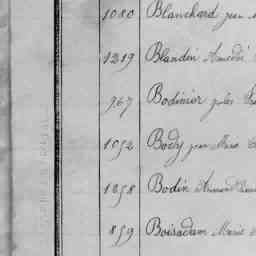 1080 Blanchard jean
1219 Blandin Amedée
967 Bodinier jules
1052 Body jean Marie
1258 Bodin Armand
859 Boisadam Marie